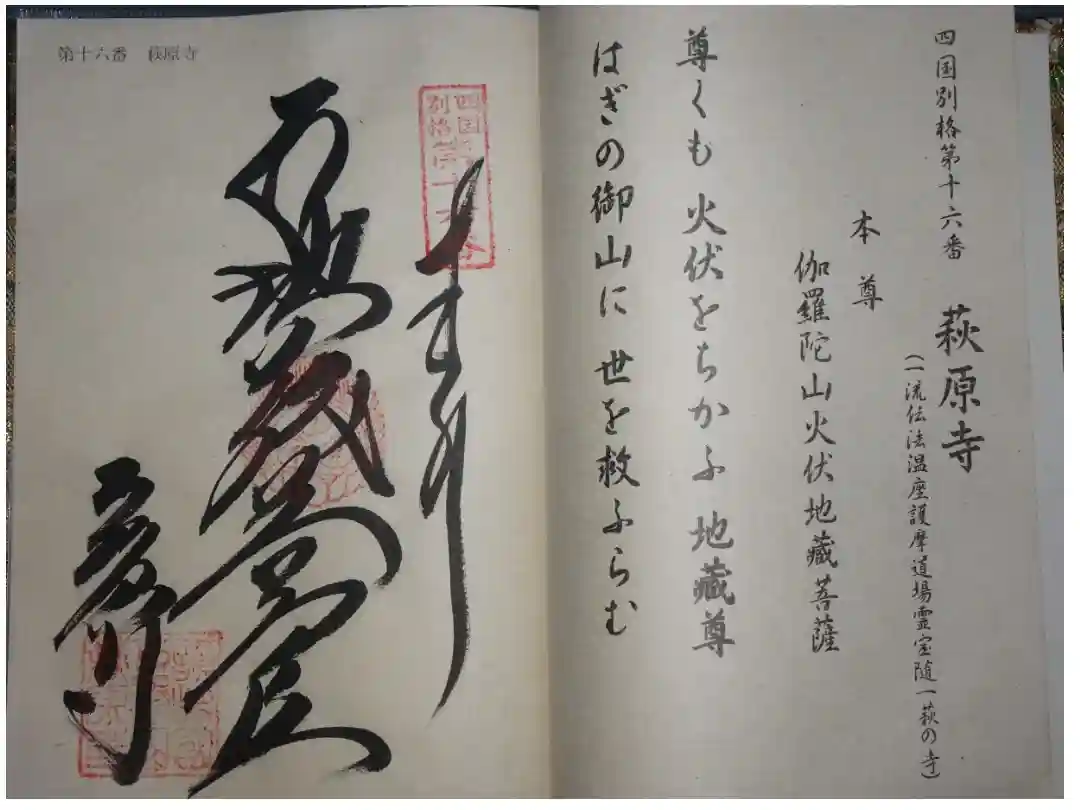 四国別格第十六番　萩原寺
(一流伝法温座護摩道場霊宝随一萩の寺)
本尊
伽羅陀山火伏地藏菩薩
尊くも 火伏をちかふ 地藏尊
はぎの御山に 世を救ふらむ
第十六番　萩原寺
四国
別格第十六番
奉拝